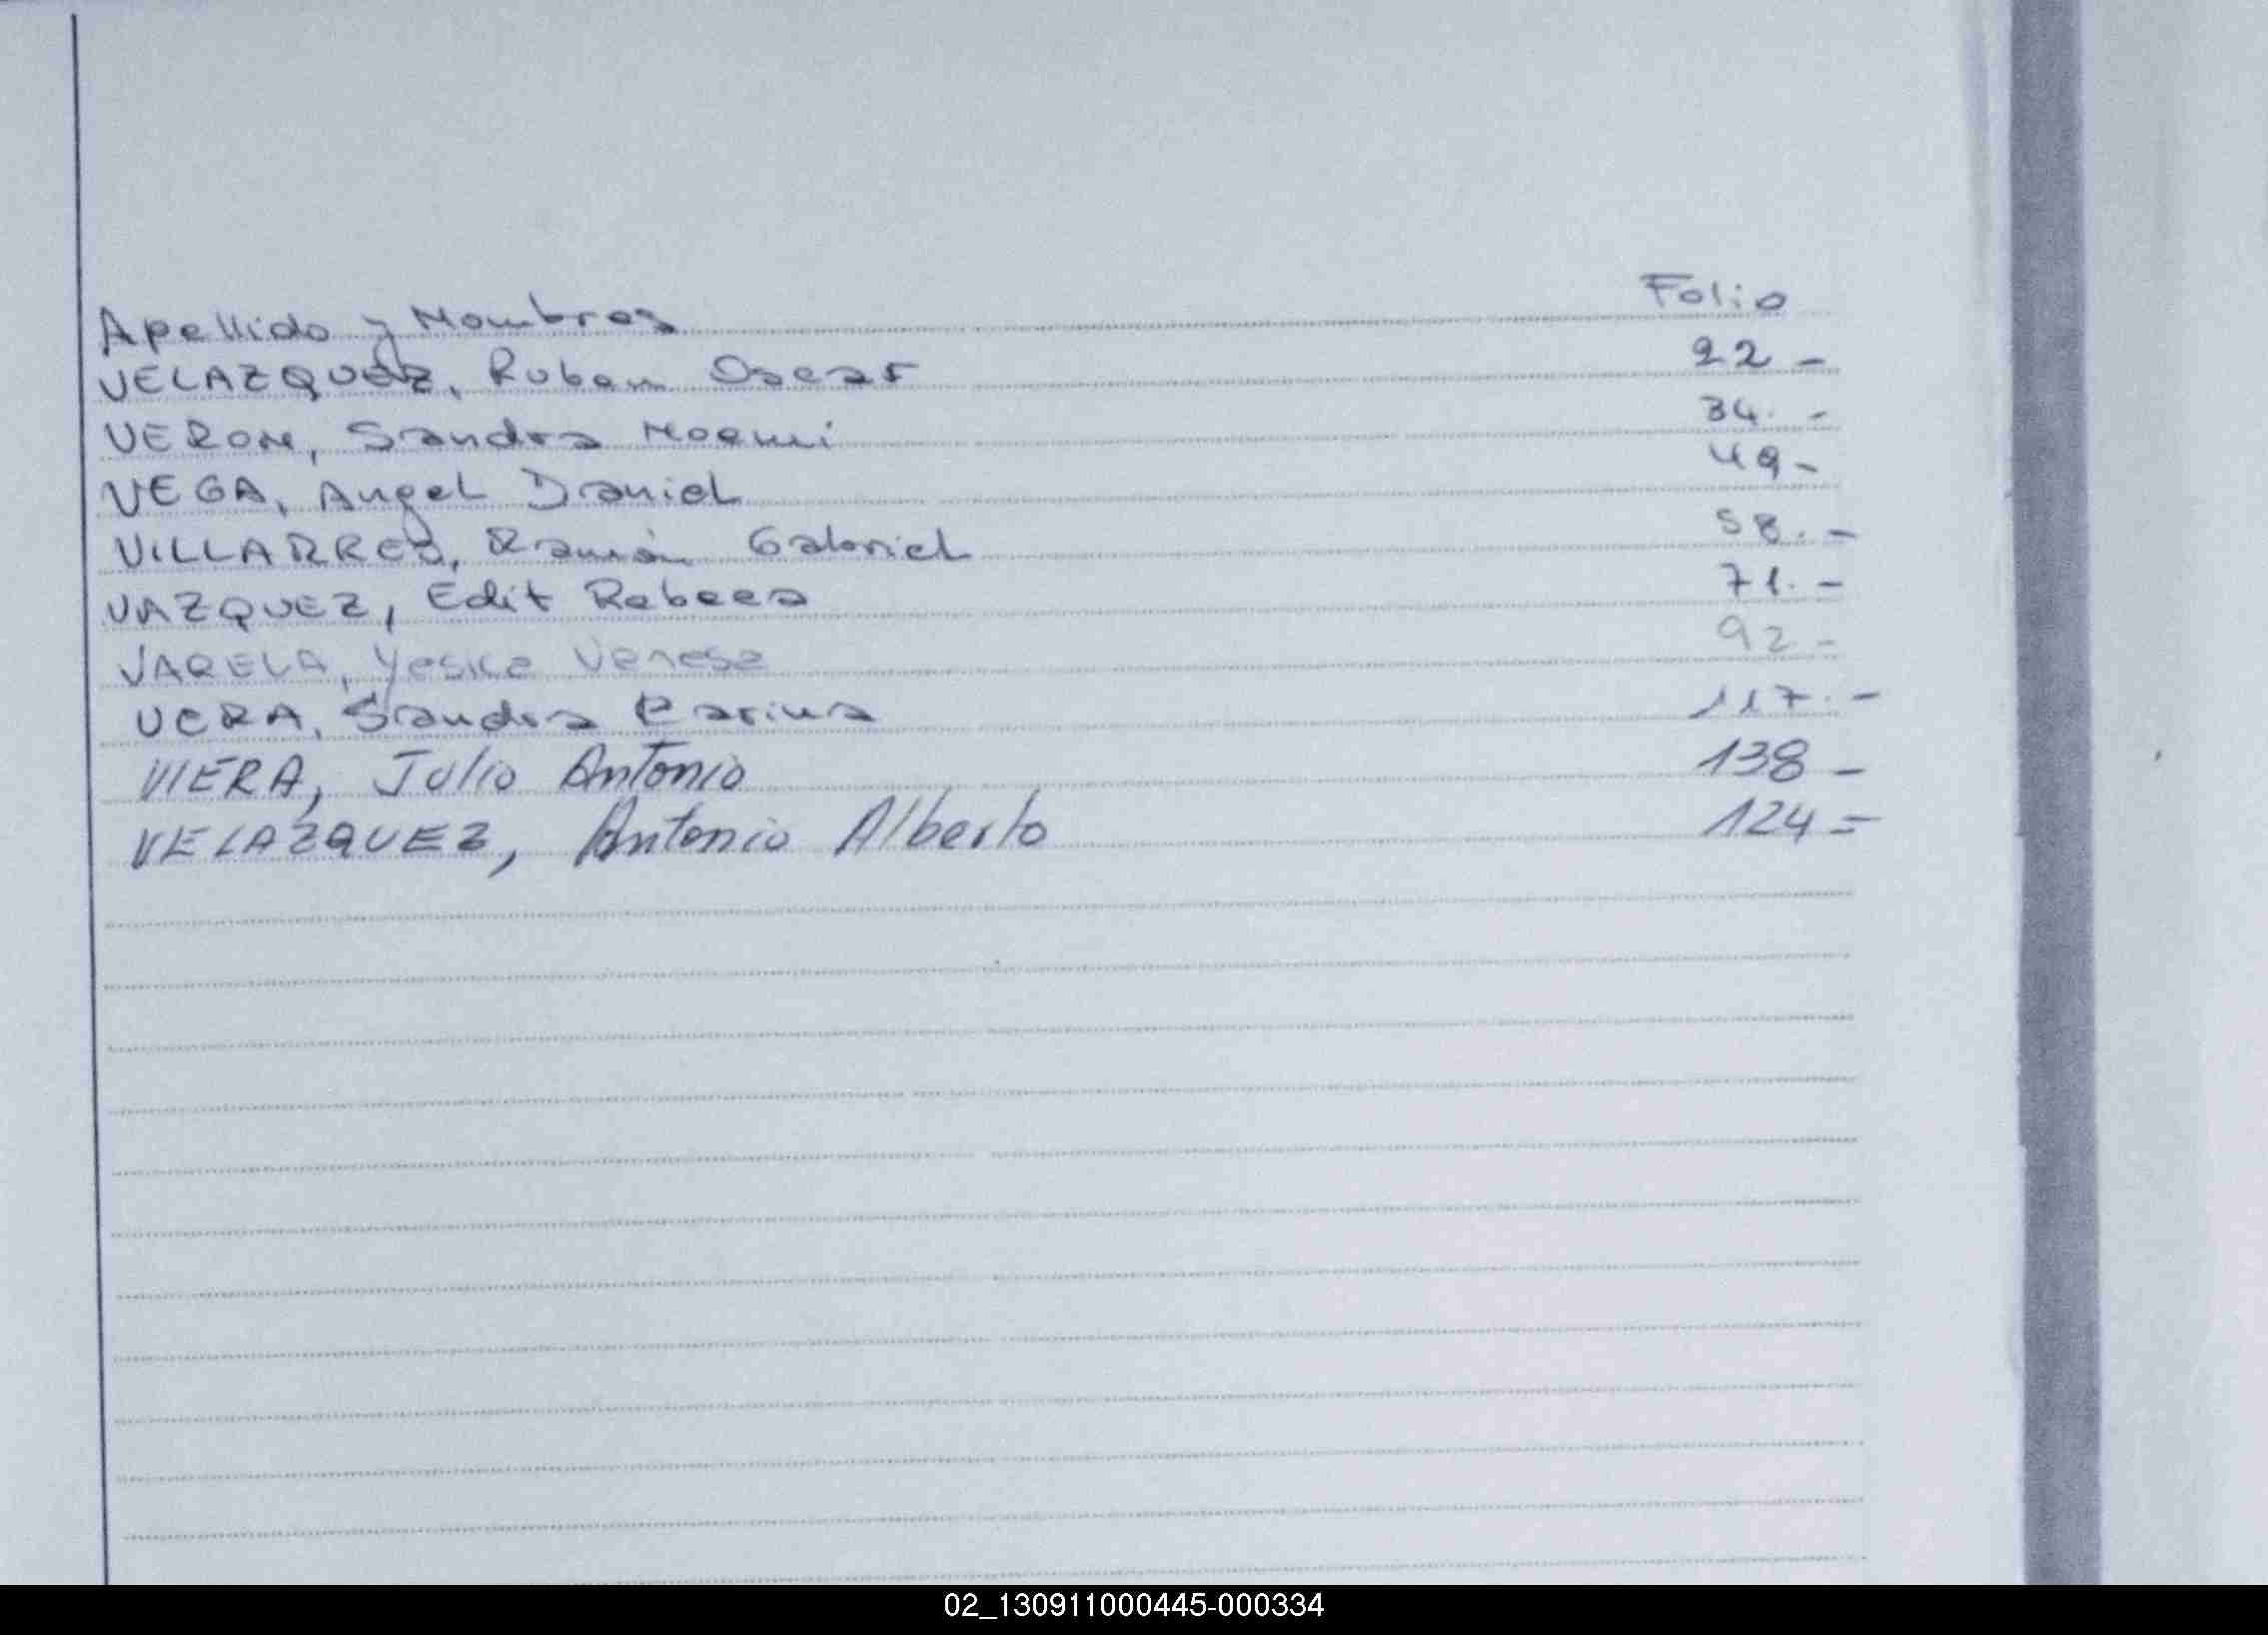 Apellido y Nombres Folio
VELAZQUEZ, Ruben Oscar 22 -
VERON, Sandra Noemi 34. -
VEGA, Angel Daniel 49 -
Ramón Gabriel 58. -
VAZQUEZ, Edit Rebeca 71. -
VARELA, Yesica Vanesa 92 -
VERA, Sandra Karina 117. -
VIERA, Julio Antonio 138 -
VELAZQUEZ, Antonio Alberto 124 =
02_130911000445-000334